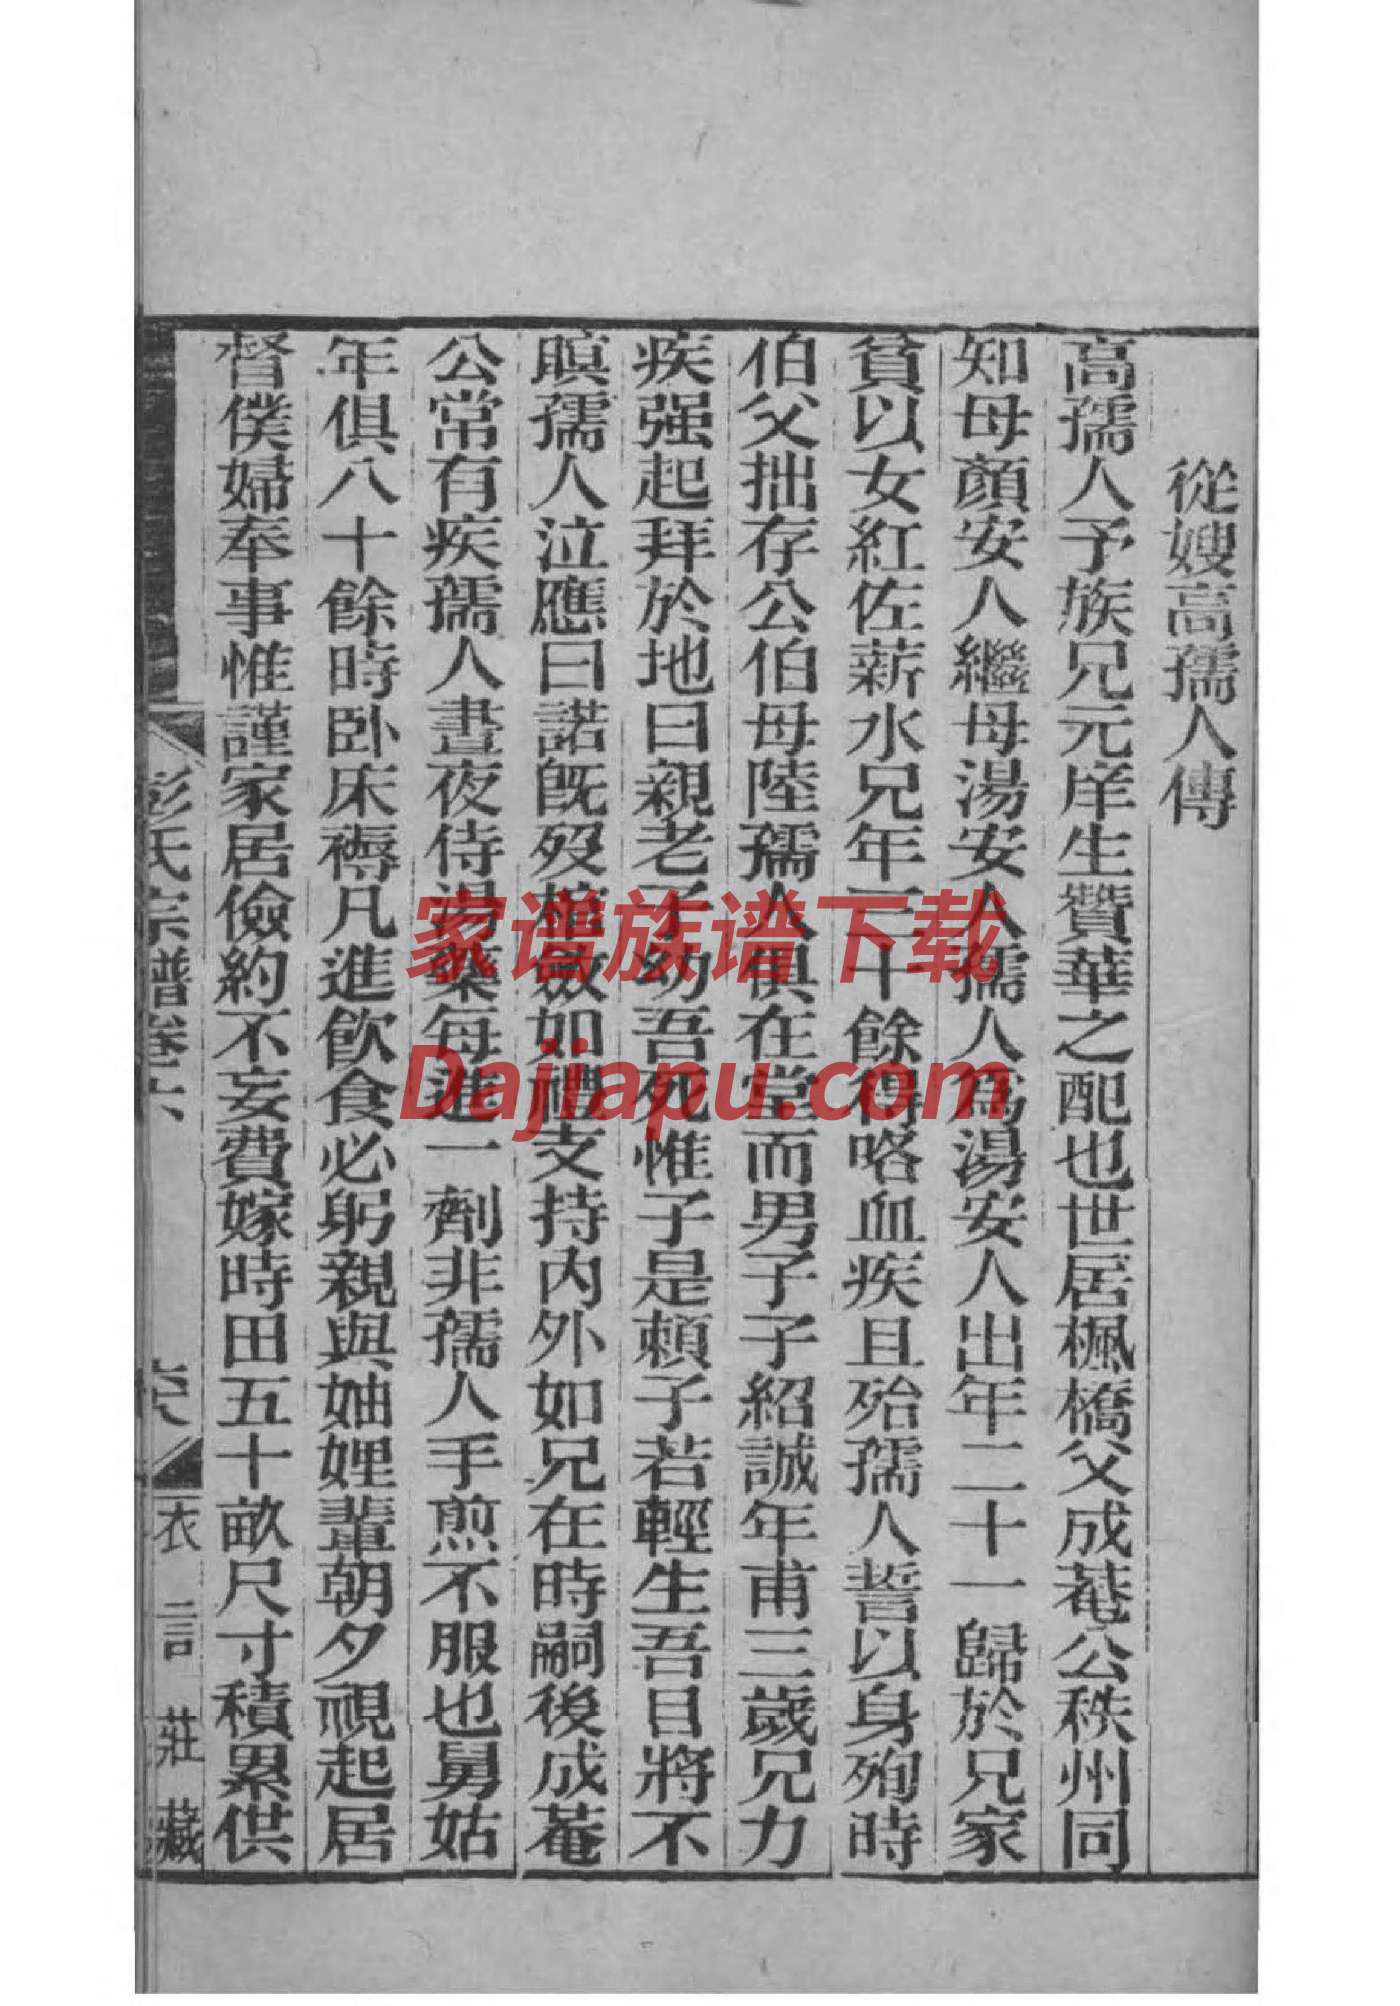 從嫂高孺人傳
高孺人予族兄元庠生贊華之配也世居楓橋父成菴公秩州同
知母顏安人繼母湯安人孺人爲湯安人出年二十一歸於兄家
貧以女紅佐薪水兄年三十餘得咯血疾且殆孺人誓以身殉時
伯父拙存公伯母陸孺人俱在堂而男子子紹誠年甫三歲兄力
疾强起拜於地曰親老子幼吾死惟子是賴子若輕生吾目將不
瞑孺人泣應曰諾旣歿棺斂如禮支持內外如兄在時嗣後成菴
公常有疾孺人晝夜侍湯藥每進一劑非孺人手煎不服也舅姑
年俱八十餘時卧床褥凡進飲食必躬親與妯娌輩朝夕視起居
督僕婦奉事惟謹家居儉約不妄費嫁時田五十畝尺寸積累供
彭氏宗譜卷六
六
衣言莊藏
家谱族谱下载
Dajiapu.com